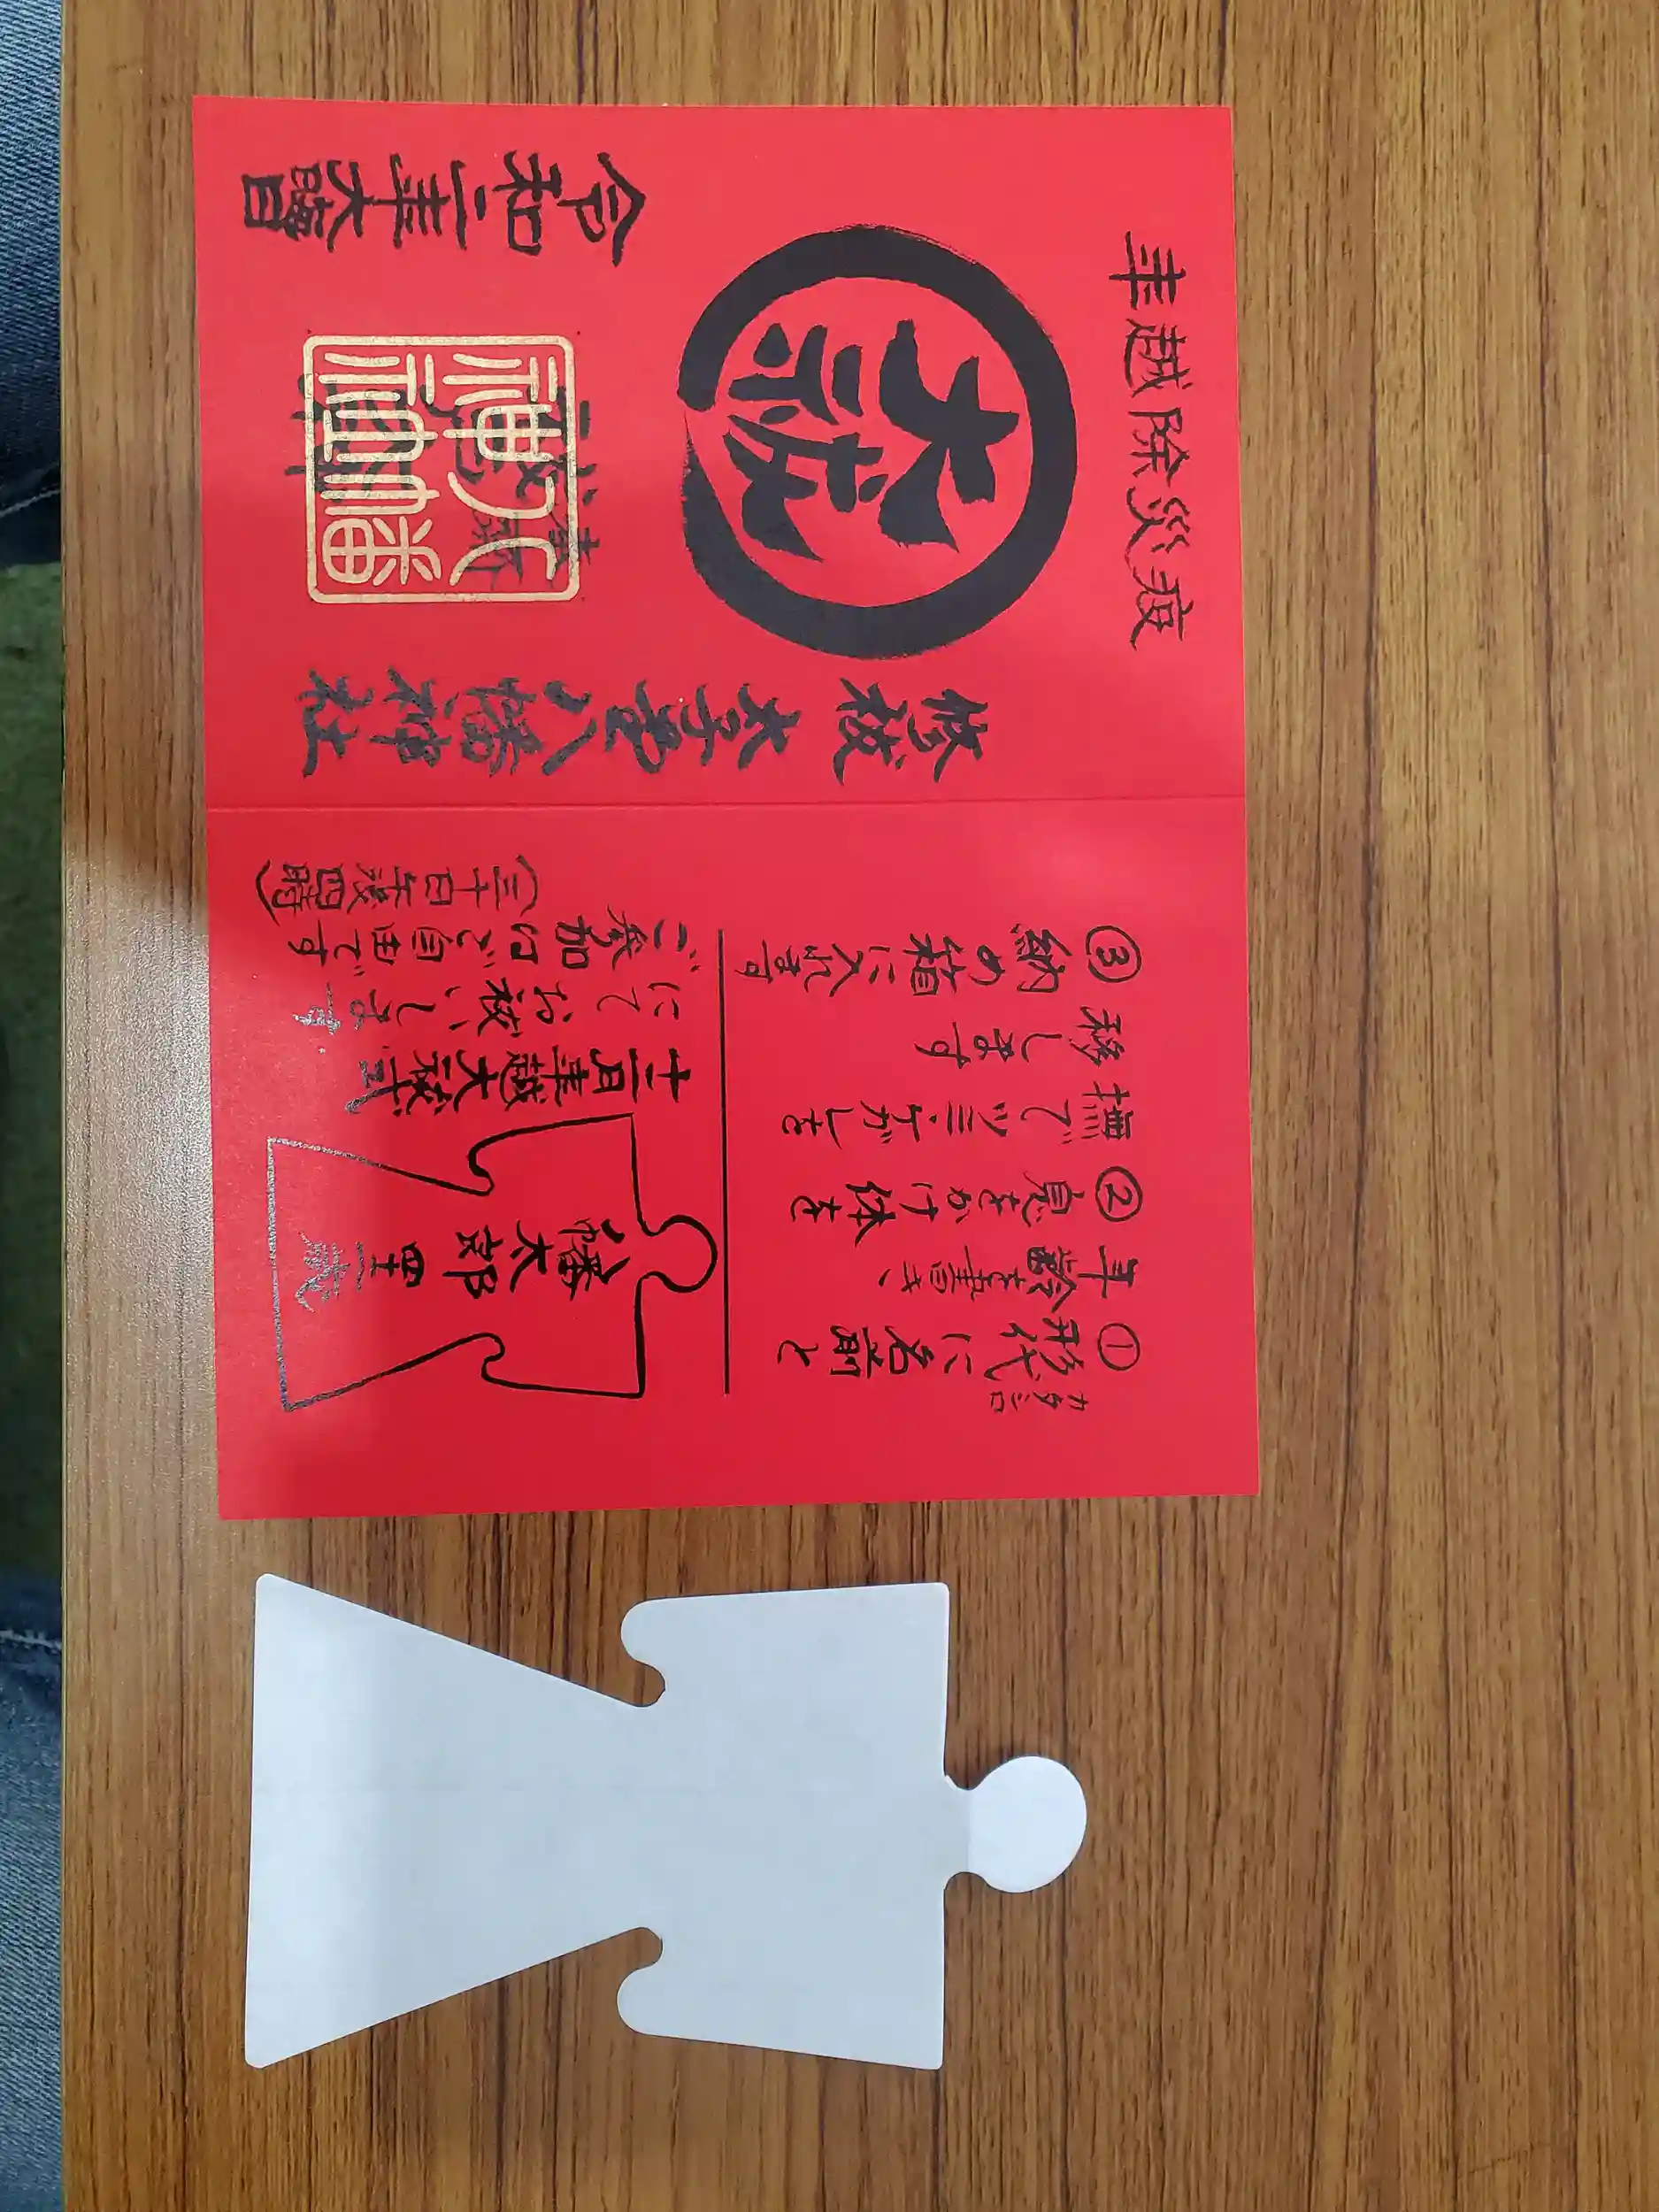 年越除災疫
修祓
太子堂八幡神社
大祓
八幡
神社
令和二年大晦日
①形代に名前と
カタシロ
年齢を書き、
②息をかけ体を
撫でツミ・ケガレを
移します
③納め箱に入れます
八幡太郎
四十二歳
十二月年越大祓式
にてお祓いします
ご参加ご自由です
(三十一日午後四時)